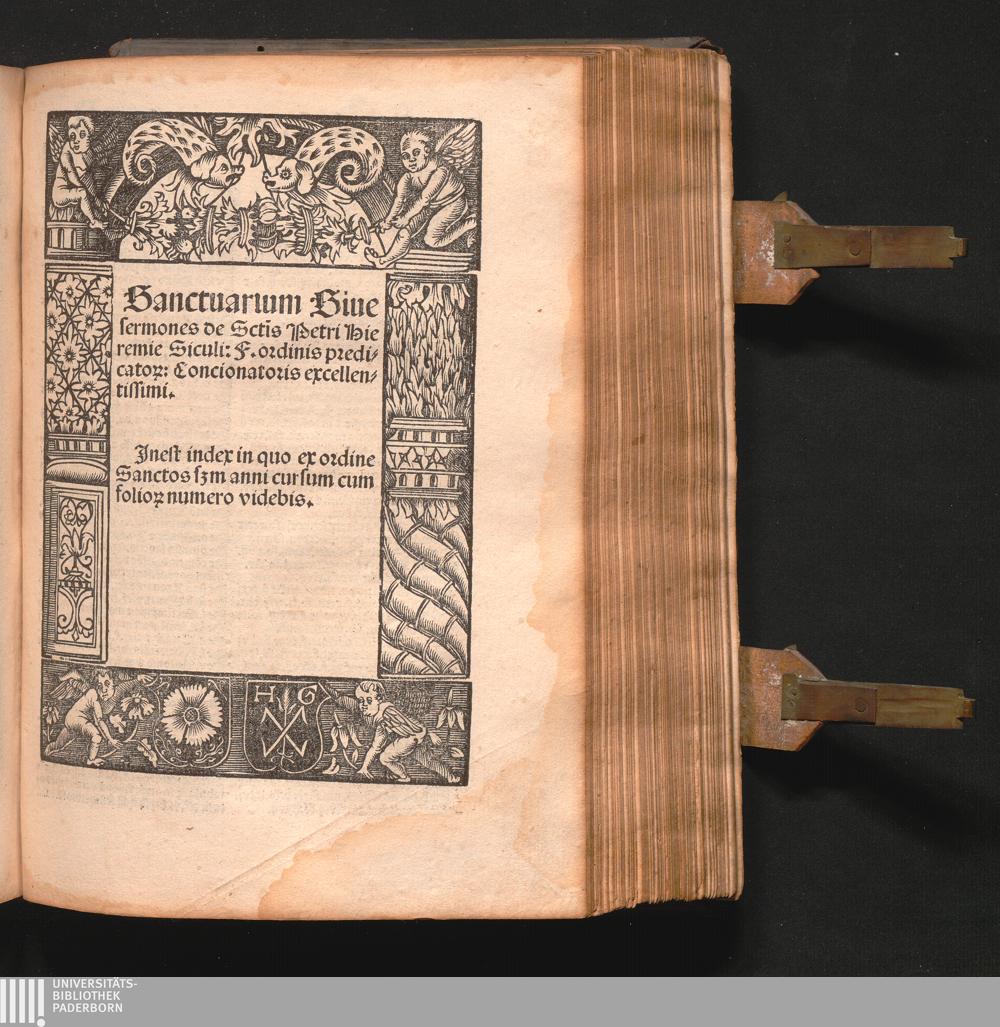 Sanctuarium Siue
sermones de Sctis Petri Hie
remie Siculi: F. ordinis predi-
catoꝝ: Concionatoris excellen-
tissimi.
Inest index in quo ex ordine
Sanctos sꝫm anni cursum cum
folioꝝ numero videbis.
H G
UNIVERSITÄTS-
BIBLIOTHEK
PADERBORN